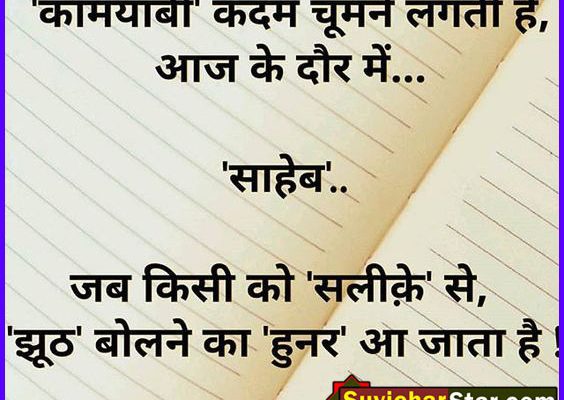 'कामयाबी' कदम चूमने लगती है,
आज के दौर में...
'साहेब'..
जब किसी को 'सलीक़े' से,
'झूठ' बोलने का 'हुनर' आ जाता है !
SuvicharStar.com